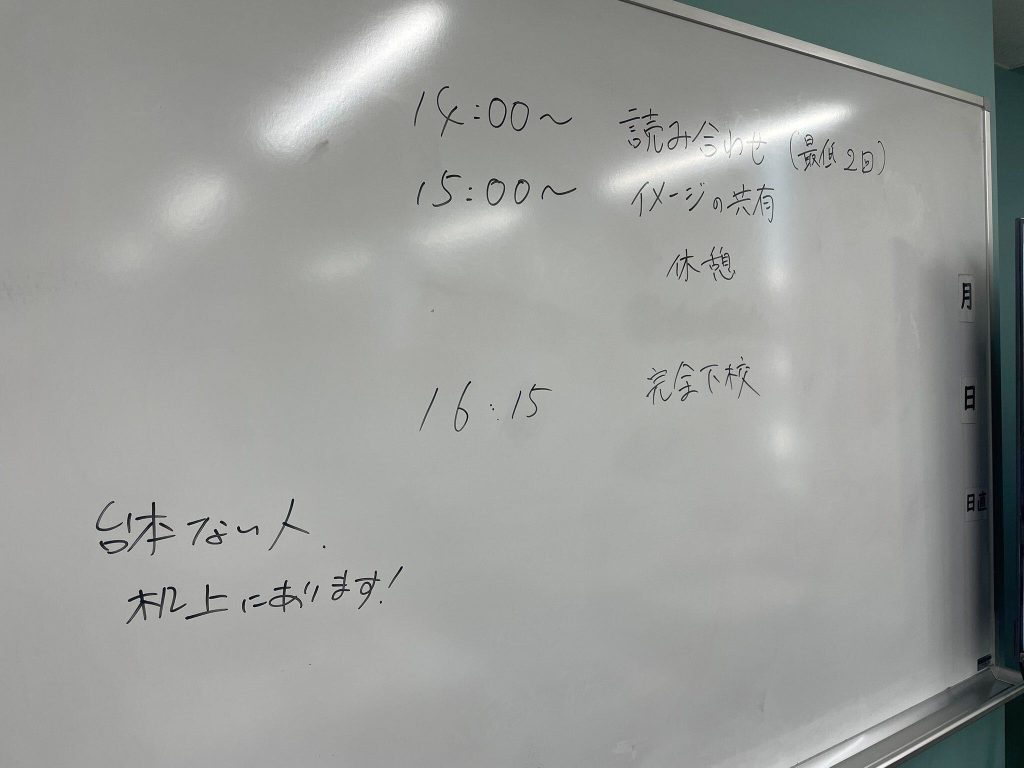 14:00～ 読み合わせ (最低2回)
15:00～ イメージの共有
休憩
16:15 完全下校
台本ない人.
机上にあります!
月
日
日直